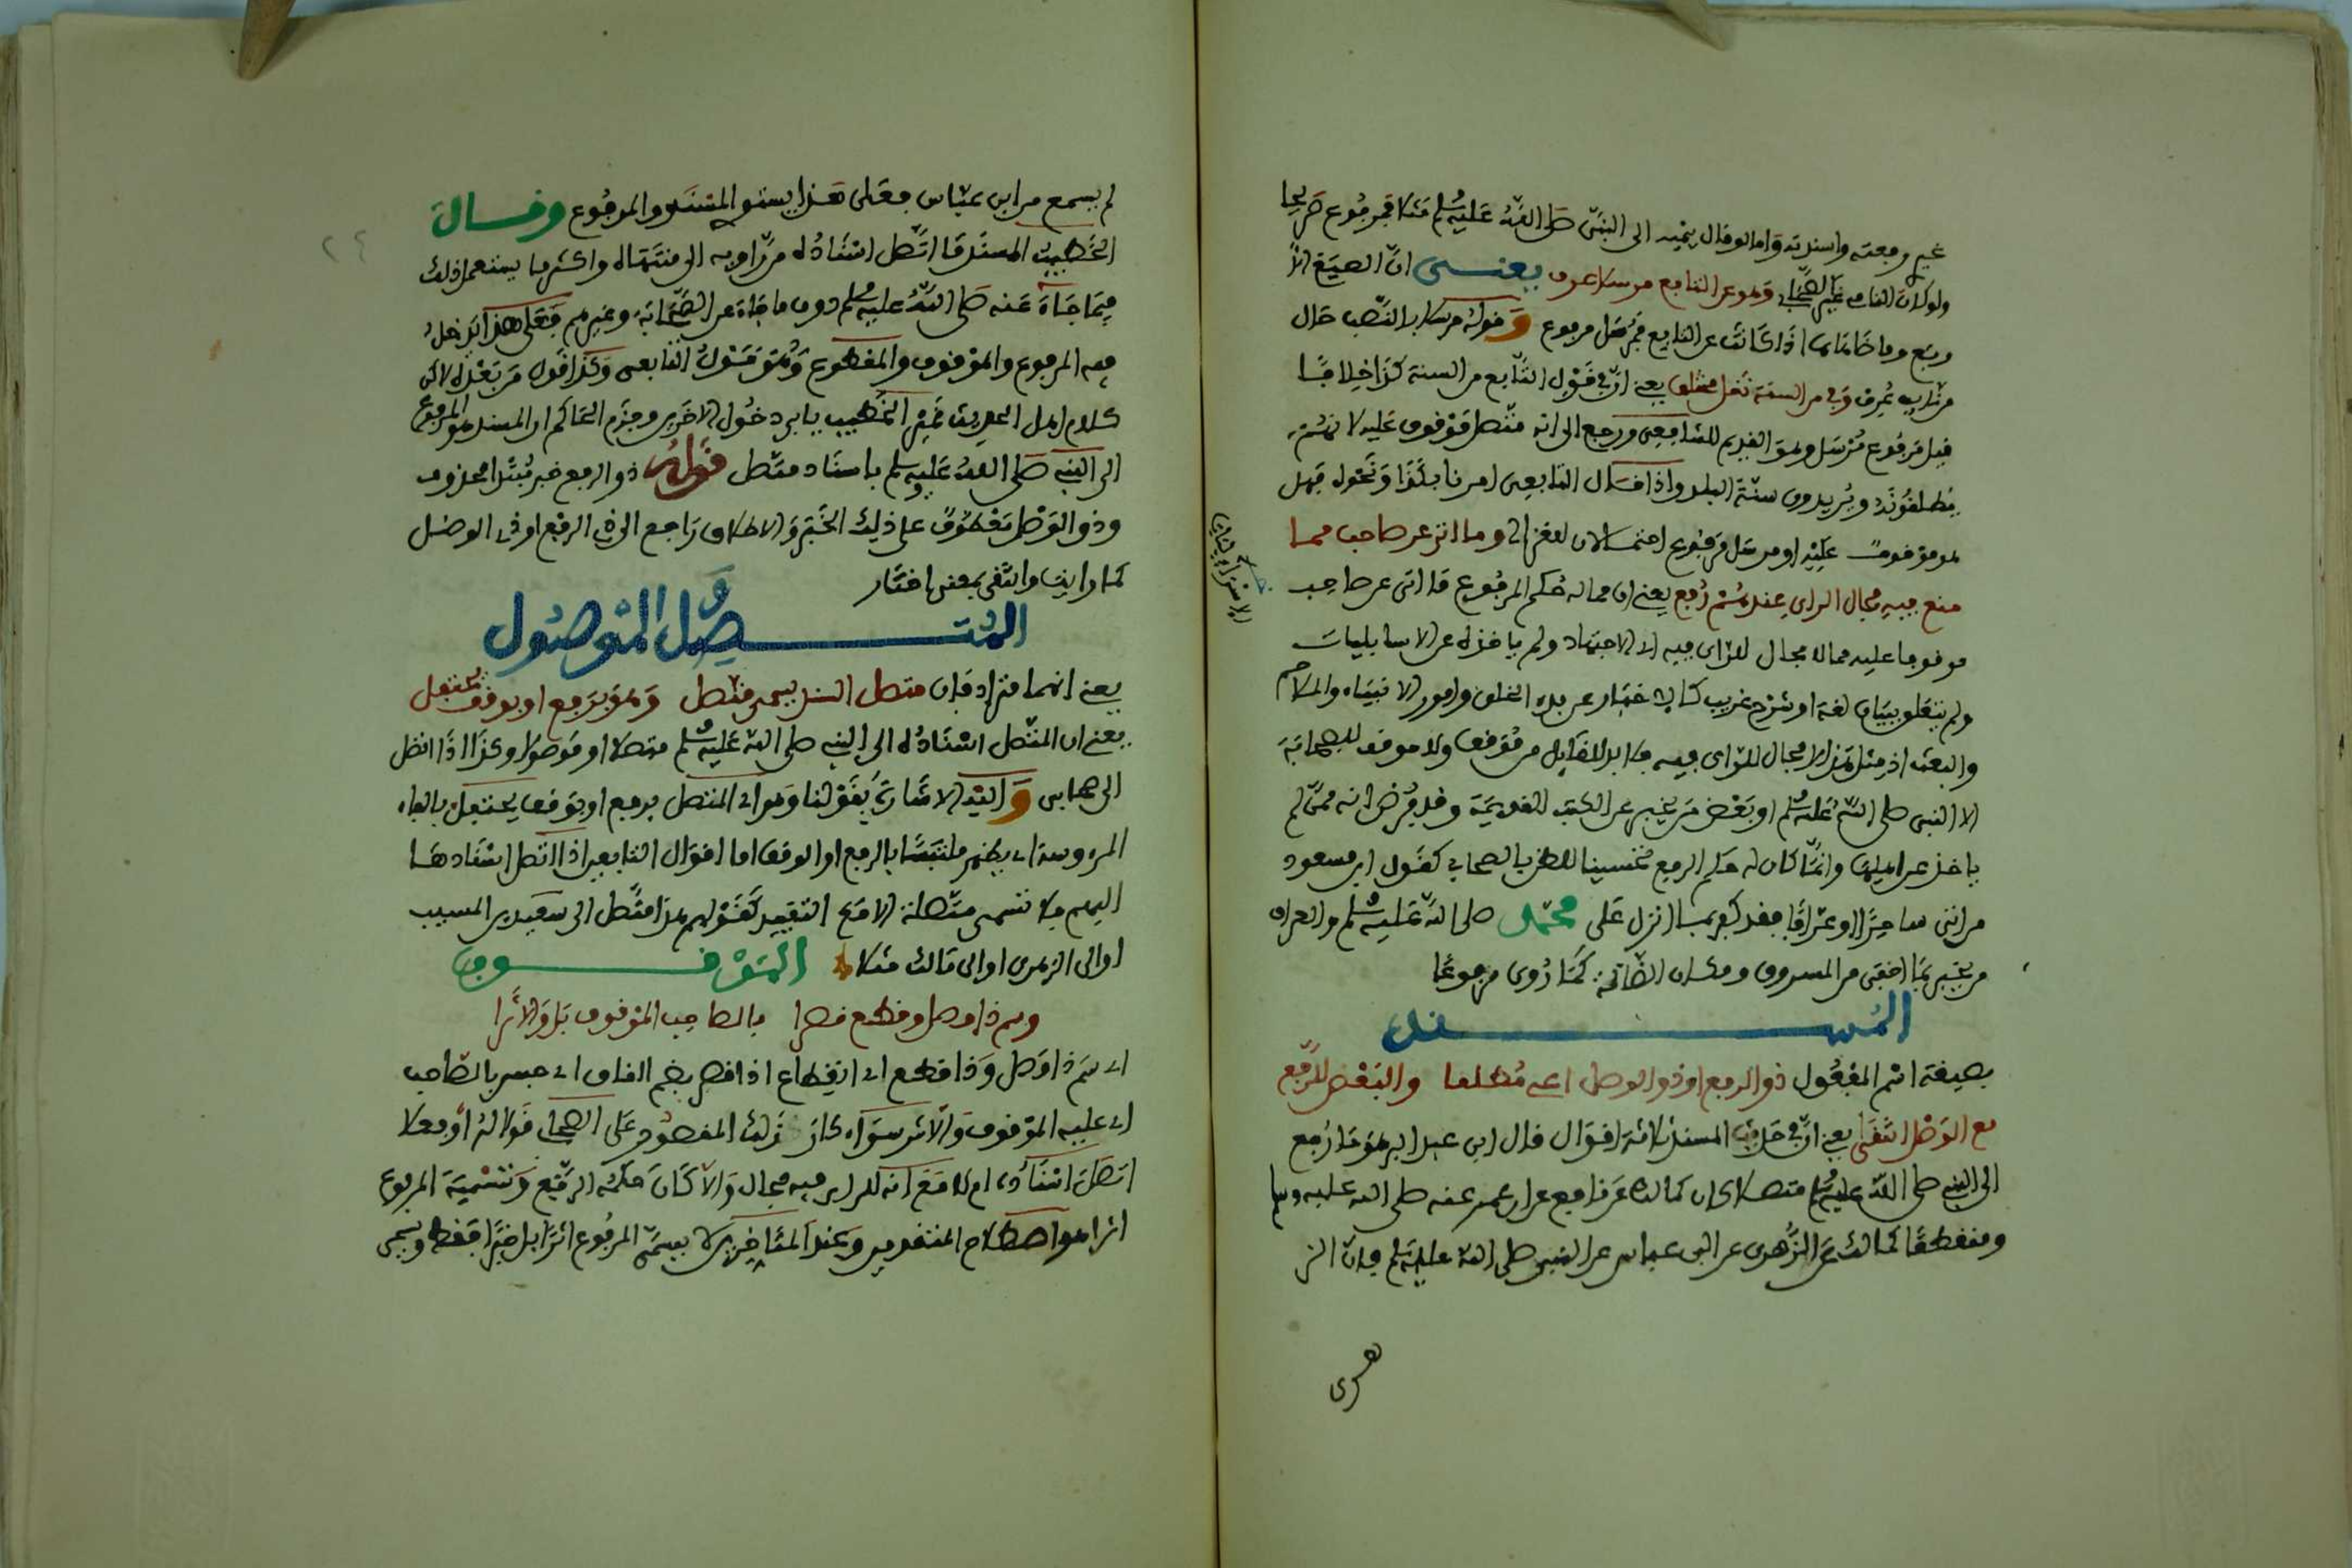 غيره رفعته واسندته واما لو قال ينميه الى النبي صلى الله عليه وسلم مثلا فمرفوع صريحا
ولو كان القائل غير الصحابي وهو عن التابع مرسلا عرف يعنى ان الصيغ
وما ضاهاها اذا كانت عن التابع فمرسل مرفوع وقوله مرسلا بالنصب حال
من نايب عرف وفي من السنة نقل مختلف يعنى ان في قول التابع من السنة كذا خلافا
قيل مرفوع مرسل وهو القديم للشافعى ورجع الى انه متصل موقوف عليه لانهم
يطلقونه ويريدون سنة البلد واذا قال التابعى امرنا بكذا ونحوه فهل
هو موقوف عليه او مرسل مرفوع احتمالان للغزالي وما اتى عن صاحب مما
منع فيه مجال الراى عندهم رفع يعنى ان مما له حكم المرفوع ما اتى عن صاحب
موقوفا عليه مما لا مجال للراى فيه اى الاجتهاد ولم ياخذه عن الاسرايليات
ولم يتعلق ببيان لغة او شرح غريب كالاخبار عن بدء الخلق وامور الانبياء والملاحم
والبعث اذ مثل هذا لا مجال للراى فيه فلا بد للقايل من موقف ولا موقف للصحابة
الا النبي صلى الله عليه وسلم او بعض من يخبر عن الكتب القديمة وقد فرض انه ممن لم
ياخذ عن اهلها وانما كان له حكم الرفع تحسينا للظن بالصحابي كقول ابن مسعود
من اتى ساحرا او عرافا فقد كفر بما انزل على محمد صلى الله عليه وسلم والعراف
من يخبر بما اخفى من المسروق ومكان الضالة كما روى مرفوعا
المسند
بصيغة اسم المفعول ذو الرفع او ذو الوصل اعنى مطلقا والبعض للرفع
مع الوصل انتقى يعنى ان في حد المسند ثلاثة اقوال قال ابن عبد البر هو ما رفع
الى النبي صلى الله عليه وسلم متصلا كان كمالك عن نافع عن ابن عمر عنه صلى الله عليه وسلم
ومنقطعا كمالك عن الزهرى عن ابن عباس عن النبي صلى الله عليه وسلم فان الز
هرى
لم يسمع من ابن عباس فعلى هذا يستو المسند والمرفوع وقال
الخطيب المسند ما اتصل اسناده من راويه الى منتهاه واكثر ما يستعمل ذلك
فيما جاء عنه صلى الله عليه وسلم دون ما جاء عن الصحابة وغيرهم فعلى هذا يدخل
فيه المرفوع والموقوف والمقطوع وهو قول التابعى وكذا قول من بعده لاكن
كلام اهل الحديث غير الخطيب يابى دخول الاخرين وجزم الحاكم ان المسند هو المرفوع
الى النبي صلى الله عليه وسلم باسناد متصل قوله ذو الرفع خبر مبتدا محذوف
وذو الوصل معطوف على ذلك الخبر والاطلاق راجع الى ذي الرفع او ذي الوصل
كما رايت وانتقى بمعنى اختار
المتصل والموصول
يعنى انهما مترادفان متصل السند يسمى متصل وهو برفع او بوقف يحتفل
يعنى ان المتصل اسناده الى النبي صلى الله عليه وسلم متصلا او موصولا وكذا اذا اتصل
الى صحابى واليه الاشارة بقولنا وهو اى المتصل برفع او بوقف يحتفل بالفاء
المروسة اى يظهر ملتبسا بالرفع او الوقف اما اقوال التابعين اذا اتصل اسنادها
اليهم فلا تسمى متصلة الا مع التقييد كقولهم هذا متصل الى سعيد بن المسيب
او الى الزهرى او الى مالك مثلا الموقوف
وسم ذا وصل وقطع قصرا بالصاحب الموقوف بل والاثرا
اى سم ذا وصل وذا قطع اى انقطاع اذا قصر بضم القاف اى حبس بالصاحب
اى عليه الموقوف والاثر سواء كان ذلك المقصور على الصحابى قولا له او فعلا
اتصل اسناده ام لا مع انه للراى فيه مجال والا كان حكمه الرفع وتسمية المرفوع
اثرا هو اصطلاح المتقدمين وعند المتاخرين لا يسمى المرفوع اثرا بل خبرا فقط ويسمى